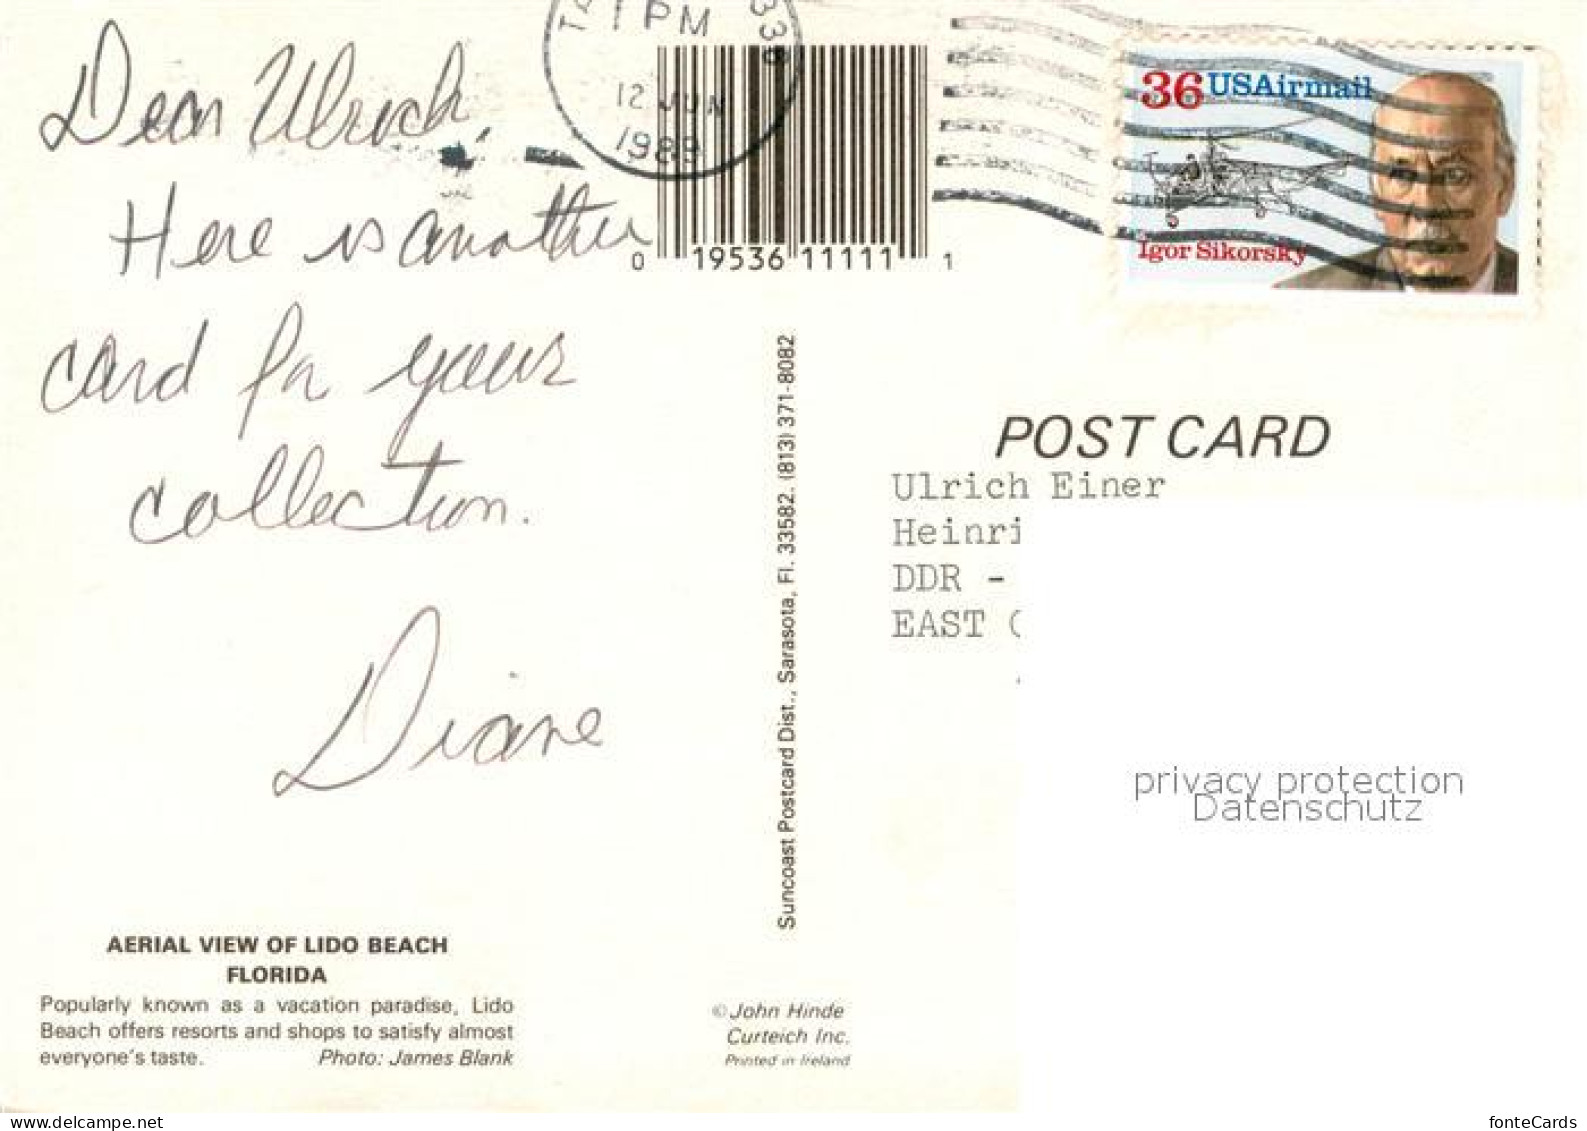 1 PM
12 JUN
1989
Dear Ulrich,
Here is another
card for your
collection.
Diane
0 19536 11111 1
36 USAirmail
Igor Sikorsky
POST CARD
Ulrich Einer
Heinri
DDR -
EAST
privacy protection
Datenschutz
Suncoast Postcard Dist., Sarasota, Fl. 33582. (813) 371-8082
AERIAL VIEW OF LIDO BEACH
FLORIDA
Popularly known as a vacation paradise, Lido
Beach offers resorts and shops to satisfy almost
everyone's taste. Photo: James Blank
© John Hinde
Curteich Inc.
Printed in Ireland
www.delcampe.net
fonteCards